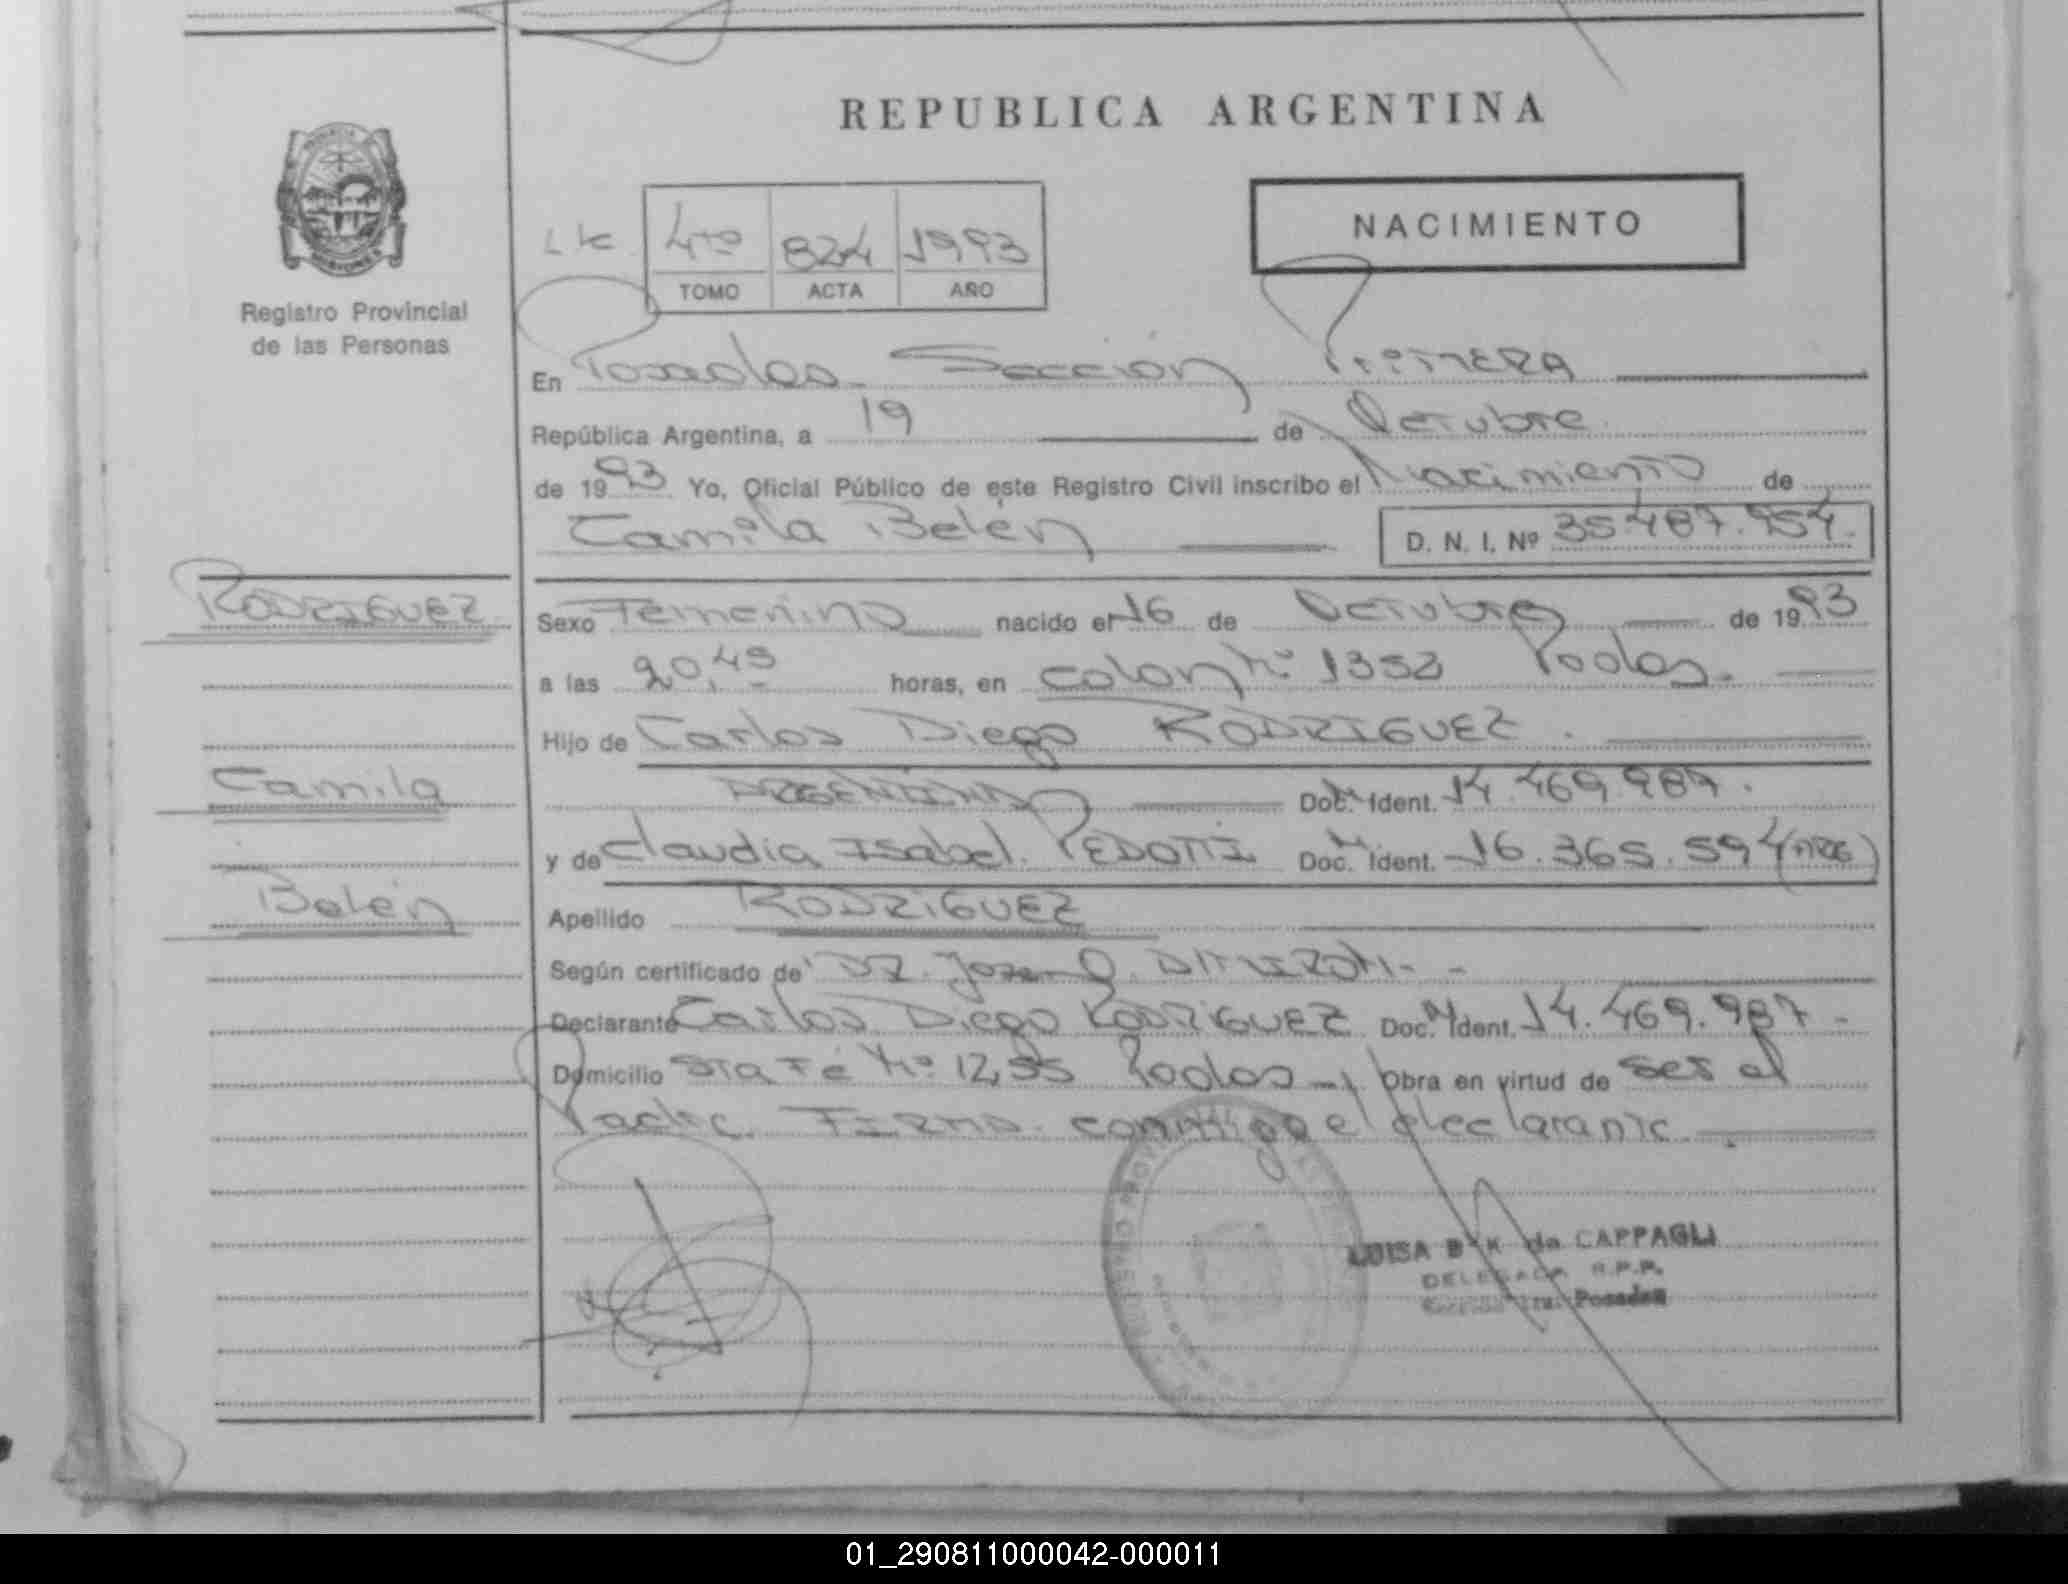 REPUBLICA ARGENTINA
NACIMIENTO
4to 824 1993
TOMO ACTA AÑO
Registro Provincial
de las Personas
En Posadas Sección PRIMERA
República Argentina, a 19 de Octubre
de 1993 Yo, Oficial Público de éste Registro Civil inscribo el Nacimiento de
Camila Belén D. N. I. Nº 35.487.954.
RODRIGUEZ
Sexo Femenino nacido el 16 de Octubre de 1993
a las 20,45 horas, en colon Nº 1352 Podas.
Hijo de Carlos Diego RODRIGUEZ.
Camila
ARGENTINO Doc. Ident. 14.469.987.
y de Claudia Isabel PEDOTTI Doc. Ident. 16.365.594
Belén
Apellido RODRIGUEZ
Según certificado de DR. Jose O.
Declarante Carlos Diego RODRIGUEZ Doc. Ident. 14.469.987-
Domicilio Sta Fé Nº 1255 Podas Obra en virtud de ser el
Padre. FIRMA conmigo el declarante
LUISA B K de CAPPAGLI
DELEGADA R.P.P.
Sección 1ra. Posadas
01_290811000042-000011